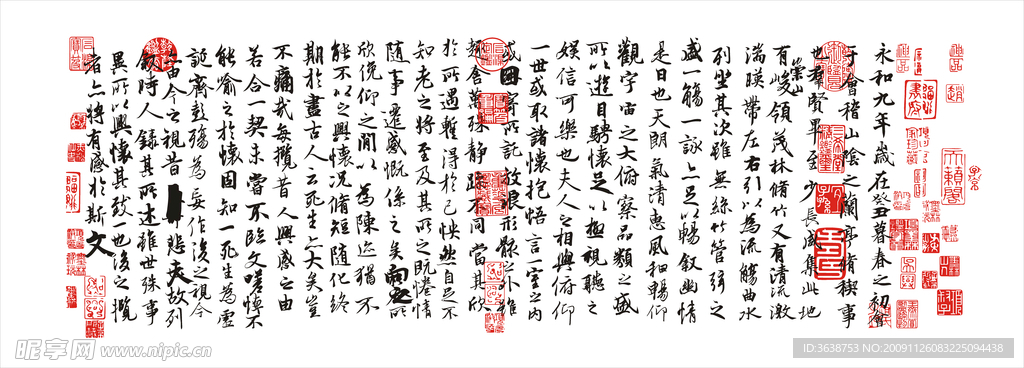 永和九年歲在癸丑暮春之初會
于會稽山陰之蘭亭脩稧事
也群賢畢至少長咸集此地
有崇山峻領茂林脩竹又有清流激
湍暎帶左右引以為流觴曲水
列坐其次雖無絲竹管弦之
盛一觴一詠亦足以暢敘幽情
是日也天朗氣清惠風和暢仰
觀宇宙之大俯察品類之盛
所以遊目騁懷足以極視聽之
娛信可樂也夫人之相與俯仰
一世或取諸懷抱悟言一室之內
或因寄所託放浪形骸之外雖
趣舍萬殊靜躁不同當其欣
於所遇蹔得於己怏然自足不
知老之將至及其所之既惓情
隨事遷感慨係之矣向之所
欣俛仰之閒以為陳迹猶不
能不以之興懷況脩短隨化終
期於盡古人云死生亦大矣豈
不痛哉每攬昔人興感之由
若合一契未嘗不臨文嗟悼不
能喻之於懷固知一死生為虛
誕齊彭殤為妄作後之視今
亦由今之視昔悲夫故列
敘時人錄其所述雖世殊事
異所以興懷其致一也後之攬
者亦將有感於斯文
昵享网 www.nipic.cn
ID:3638753 NO:20091126083225094438